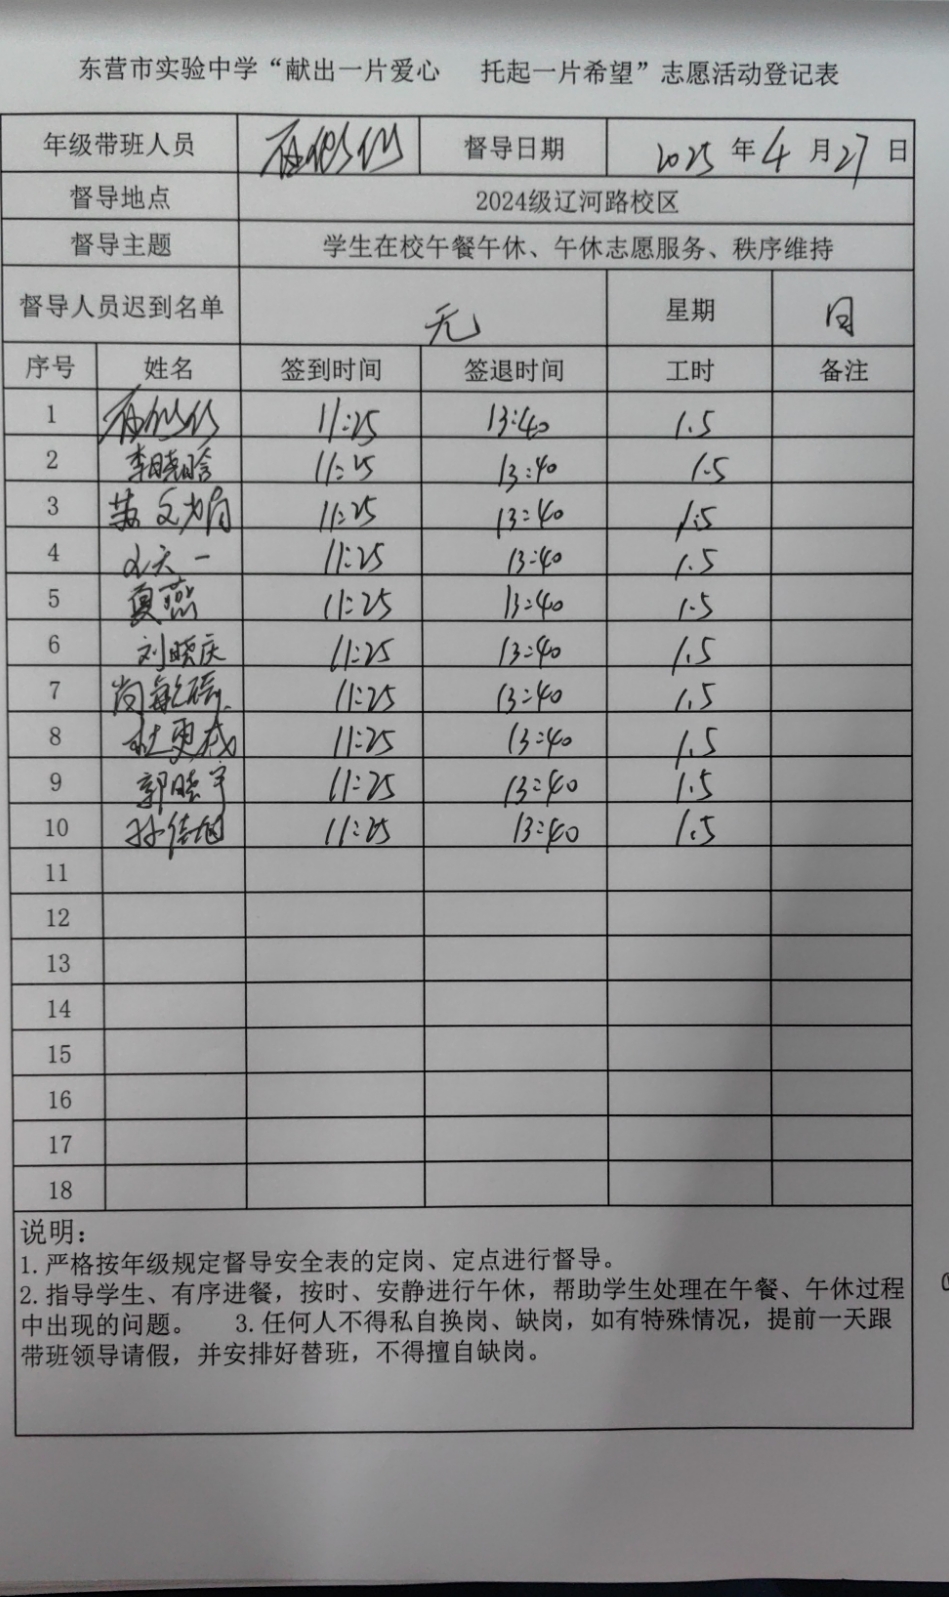 东营市实验中学“献出一片爱心 托起一片希望”志愿活动登记表
年级带班人员 督导日期 2025 年 4 月 27 日
督导地点 2024级辽河路校区
督导主题 学生在校午餐午休、午休志愿服务、秩序维持
督导人员迟到名单 无 星期 日
序号 姓名 签到时间 签退时间 工时 备注
1 11:25 13:40 1.5
2 李晓晗 11:25 13:40 1.5
3 11:25 13:40 1.5
4 11:25 13:40 1.5
5 夏燕 11:25 13:40 1.5
6 刘晓庆 11:25 13:40 1.5
7 尚敏 11:25 13:40 1.5
8 杜更成 11:25 13:40 1.5
9 郭晓宇 11:25 13:40 1.5
10 孙佳旭 11:25 13:40 1.5
11
12
13
14
15
16
17
18
说明：
1.严格按年级规定督导安全表的定岗、定点进行督导。
2.指导学生、有序进餐，按时、安静进行午休，帮助学生处理在午餐、午休过程
中出现的问题。 3.任何人不得私自换岗、缺岗，如有特殊情况，提前一天跟
带班领导请假，并安排好替班，不得擅自缺岗。